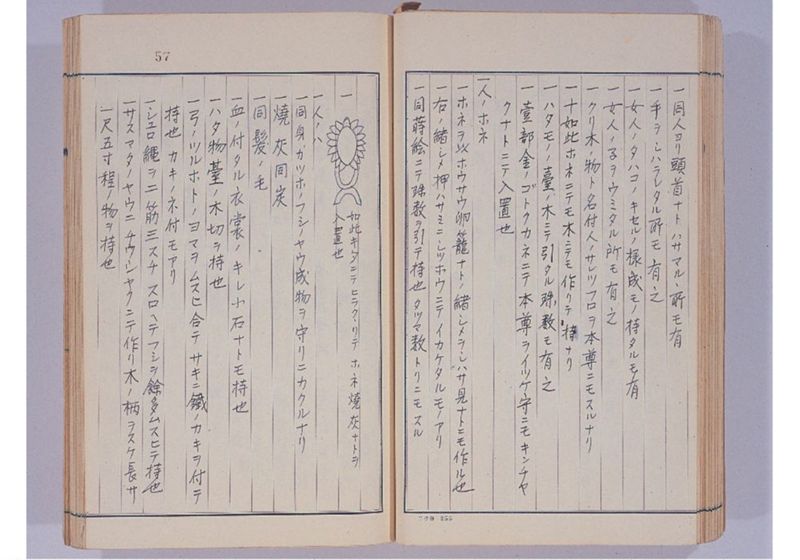 一同人ヨリ頭首ナトハサマル丶所モ有
一手ヲシハラレタル所モ有之
一女人ノタハコノキセルノ様成モノ持タルモ有
一女人ノ子ヲウミタル所モ有之
一クリ木ノ物ト名付人ノサレツフロヲ本尊ニモスルナリ
一十如此ホネニテモ木ニテモ作リテ持ナリ
一ハタモノノ臺ノ木ニテ引タル珠数モ有之
一壹部金ノゴトクカネニテ本尊ヲイツケ守ニモキンチヤ
クナトニテ入置也
一人ノホネ
一ホネヲ以ホウサウ卵籠ナトノ緒シメラシハサ見ナトニモ作ル也
一右ノ緒シメ押ハサミニシツホウニテイカケタルモノアリ
一同蒔絵ニテ珠数ヲ引テ持也タツマ数トリニモスル
57
一
如此キタニテヒラクリテホネ焼灰ナトヲ
入置也
一人ノハ
一同身カツホノフシノヤウ成物ヲ守リニカクルナリ
一燒灰同炭
一同髪ノ毛
一血ノ付タル衣裳ノキレ小石ナトモ持也
一ハタ物臺ノ木切ヲ持也
一弓ノツルホトノヨマヲムスヒ合テサキニ鐵ノカキヲ付テ
持也カキノネ付モアリ
一シユロ縄ヲ二筋三スチスロヘテフシヲ餘多ムスヒテ持也
一サスマタノヤウニチウシヤクニテ作リ木ノ柄ヲスケ長サ
一尺五寸程ノ物ヲ持也